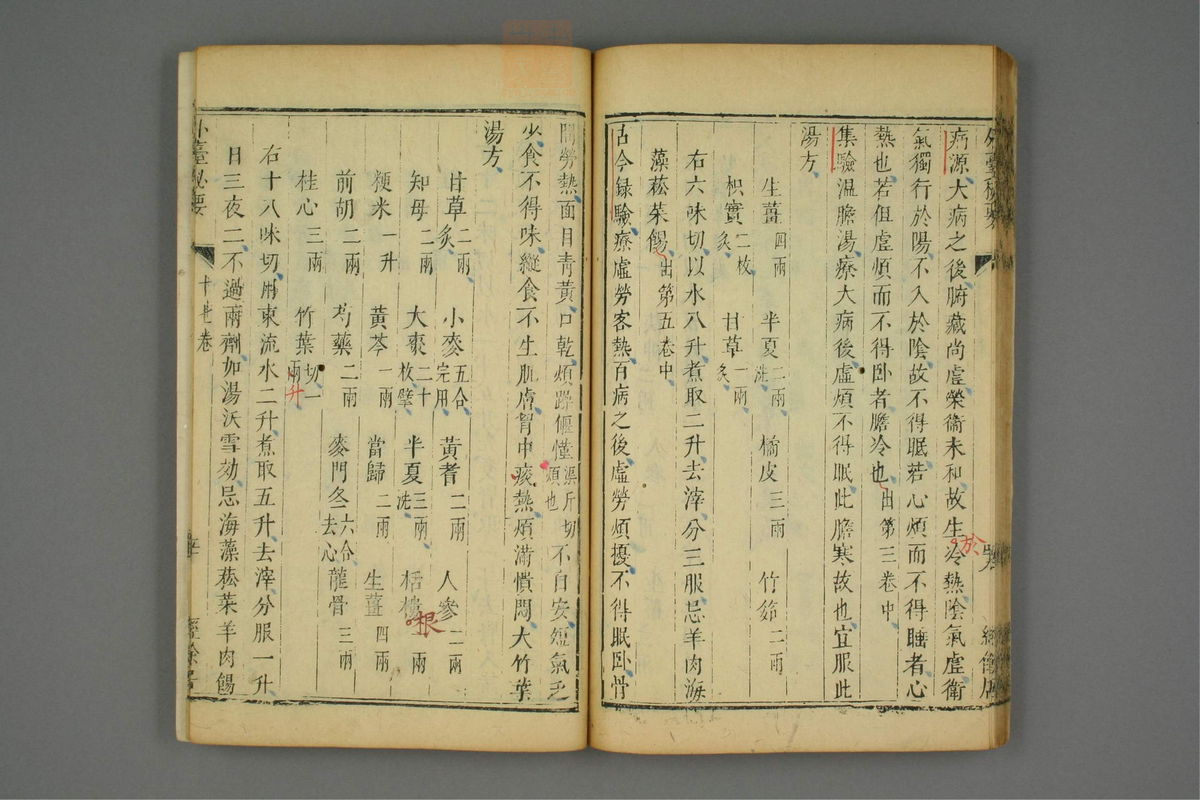 病源大病之後腑藏尚虛榮衛未和故生冷熱陰氣虛衛
於
氣獨行於陽不入於陰故不得眠若心煩而不得睡者心
熱也若但虛煩而不得卧者膽冷也出第三卷中
集驗温膽湯療大病後虛煩不得眠此膽寒故也宜服此
湯方
生薑四兩 半夏二兩洗 橘皮三兩 竹筎二兩
枳實二枚炙 甘草一兩炙
右六味切以水八升煮取二升去滓分三服忌羊肉海
藻菘菜餳出第五卷中
古今録驗療虛勞客熱百病之後虛勞煩擾不得眠卧骨
間勞熱面目青黃口乾煩躁偃懂渠斤切煩也不自安短氣乏
少食不得味縱食不生肌膚胷中痰熱煩滿憒悶大竹葉
湯方
甘草二兩炙 小麥五合完用 黃耆二兩 人參二兩
知母二兩 大棗二十枚擘 半夏三兩洗 栝樓根一兩
粳米一升 黃芩一兩 當歸二兩 生薑四兩
前胡二兩 芍藥二兩 麥門冬六合去心 龍骨三兩
桂心三兩 竹葉切一兩
升
右十八味切用東流水二升煮取五升去滓分服一升
日三夜二不過兩劑如湯沃雪効忌海藻菘菜羊肉餳
外臺秘要
十七卷
經餘居